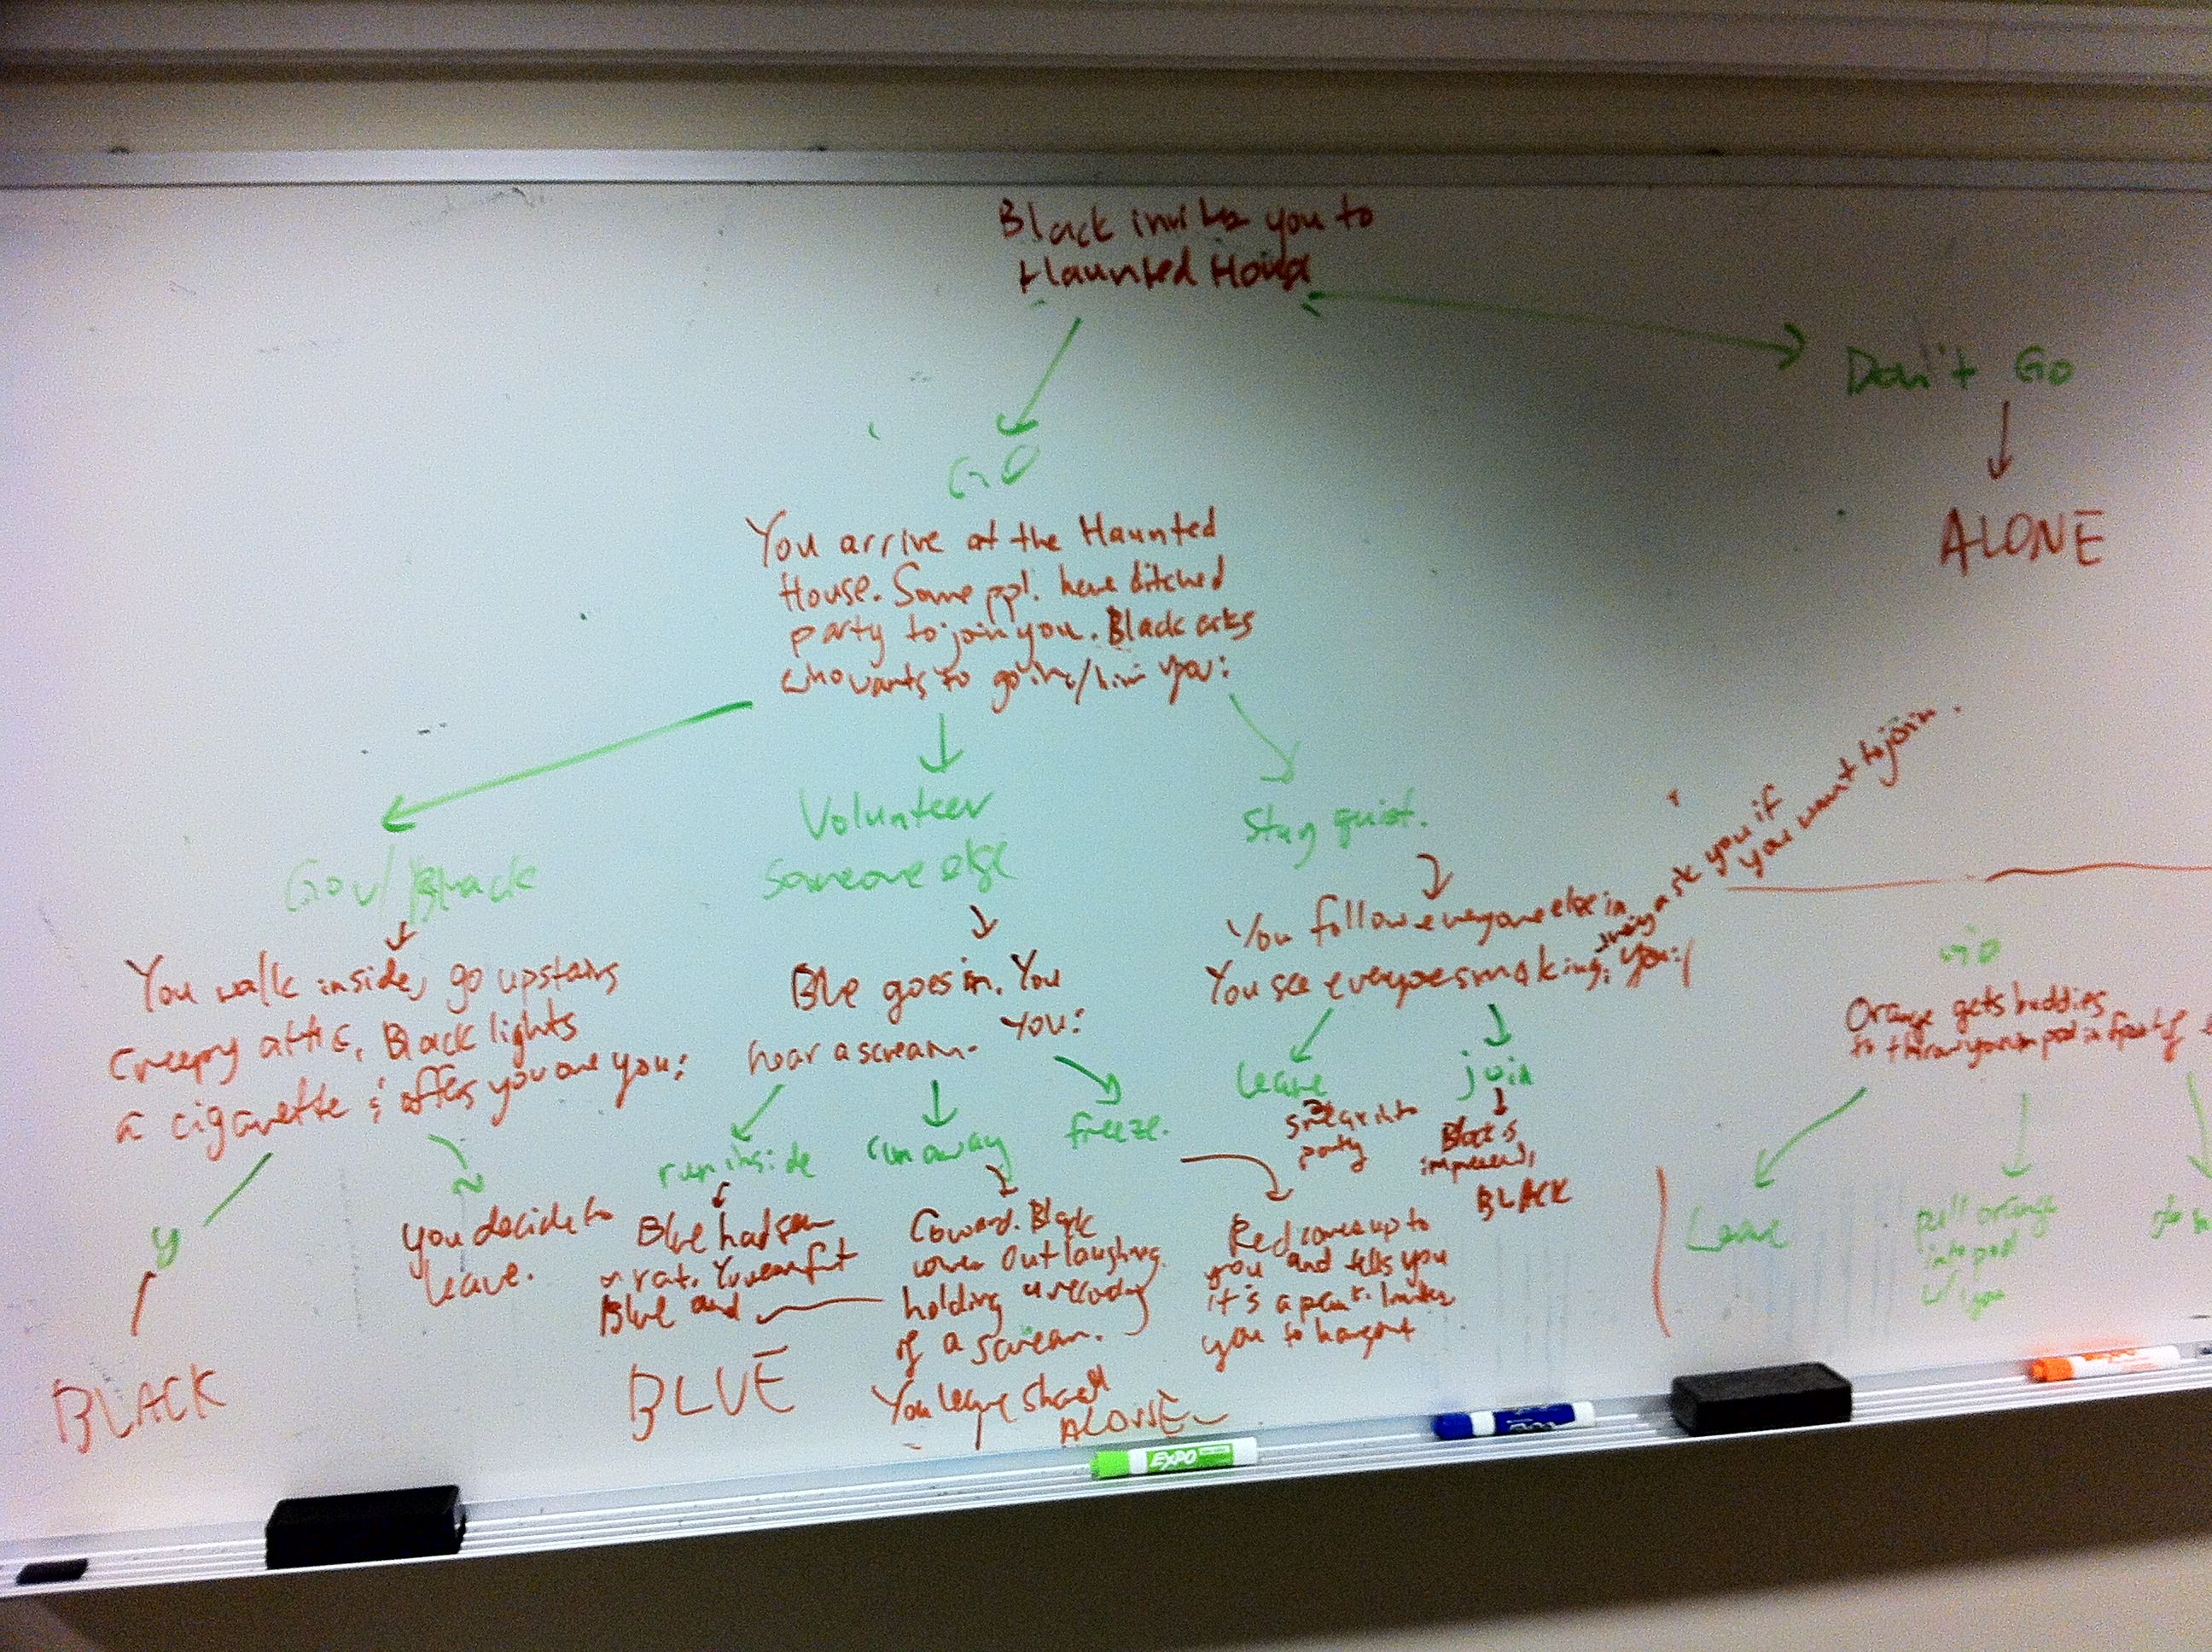 Black invites you to
Haunted House
Don't Go
ALONE
GO
You arrive at the Haunted
House. Some ppl. have ditched
party to join you. Black asks
who wants to go in / him you:
Go w/ Black
Volunteer
someone else
Stay quiet.
You walk inside, go upstairs
creepy attic, Black lights
a cigarette & offers you one you:
Y
BLACK
N
you decide to
leave.
Blue goes in. You
hear a scream. You:
run inside
run away
freeze.
Blue had seen
a rat. You comfort
Blue and
BLUE
Coward. Black
comes out laughing
holding a recording
of a scream.
You leave
ALONE
Red comes up to
you and tells you
it's a prank. Invites
you to hangout
You follow everyone else in
You see everyone smoking. They ask you if
you want to join.
You:
leave
sneak into
party
join
Black is
impressed,
BLACK
Orange gets buddies
to throw you in pool in front of
Leave
pull orange
into pool
w/ you
EXPO